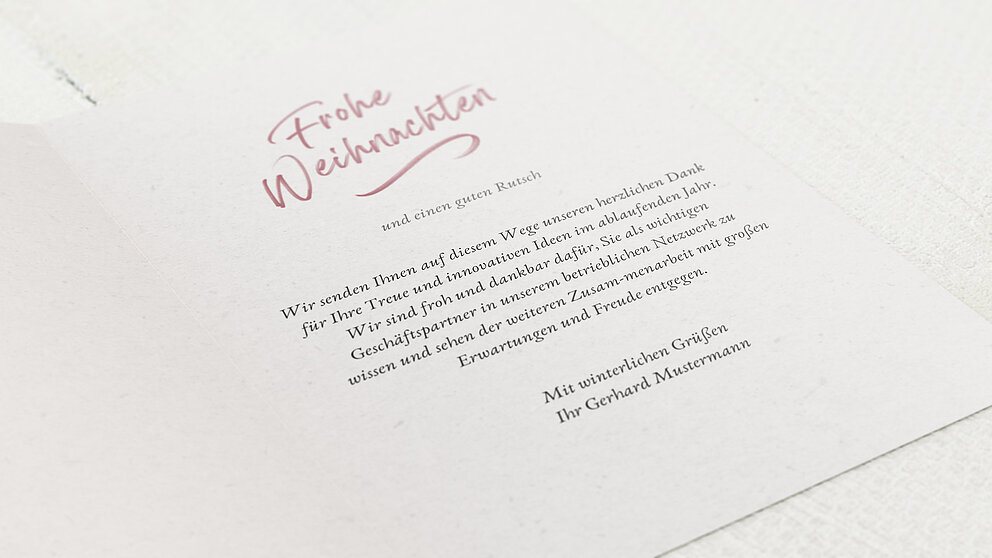 Frohe
Weihnachten
und einen guten Rutsch
Wir senden Ihnen auf diesem Wege unseren herzlichen Dank
für Ihre Treue und innovativen Ideen im ablaufenden Jahr.
Wir sind froh und dankbar dafür, Sie als wichtigen
Geschäftspartner in unserem betrieblichen Netzwerk zu
wissen und sehen der weiteren Zusam-menarbeit mit großen
Erwartungen und Freude entgegen.
Mit winterlichen Grüßen
Ihr Gerhard Mustermann